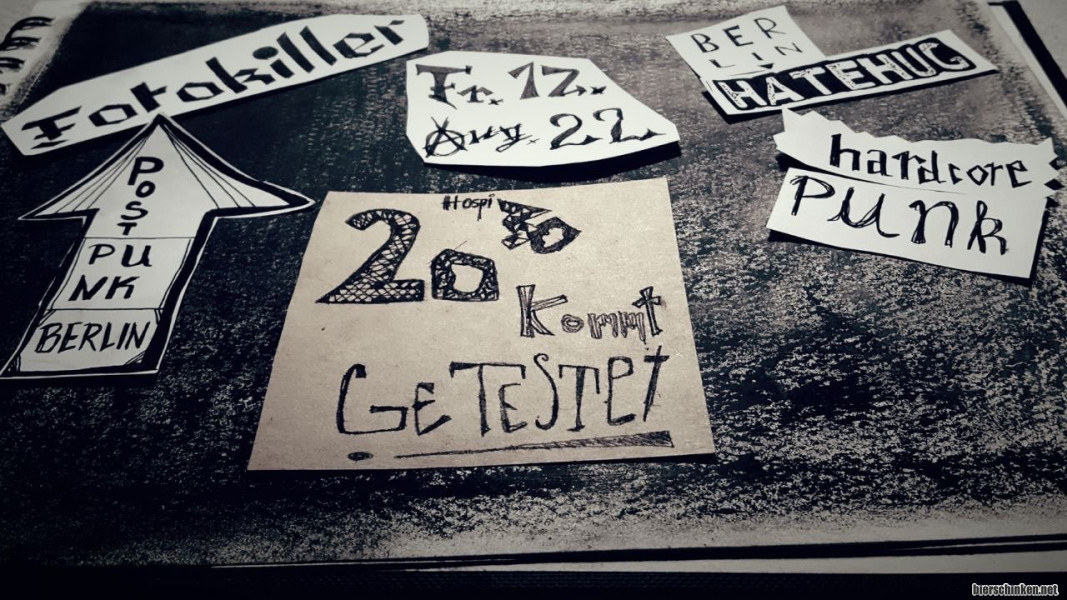 Fotokiller
POST
PU
NK
BERLIN
Fr. 12.
Aug. 22
BER
LIN
HATEHUG
hardcore
PUnk
20 30
Kommt
GETESTET
bierschinken.net